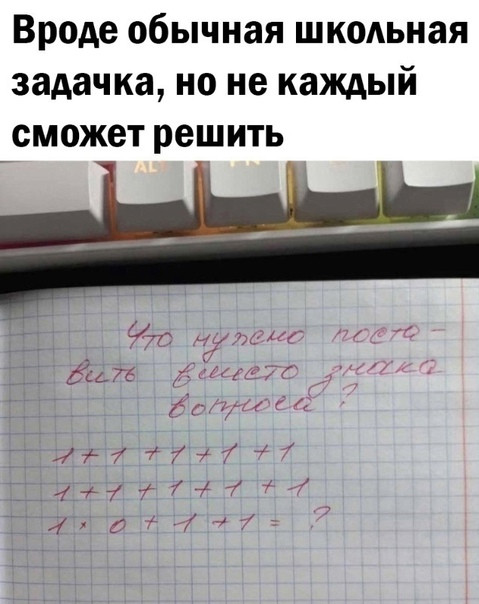 Вроде обычная школьная
задачка, но не каждый
сможет решить
ALT FN
Что нужно поста-
вить вместо знака
вопроса?
1+1+1+1+1
1+1+1+1+1
1×0+1+1=?